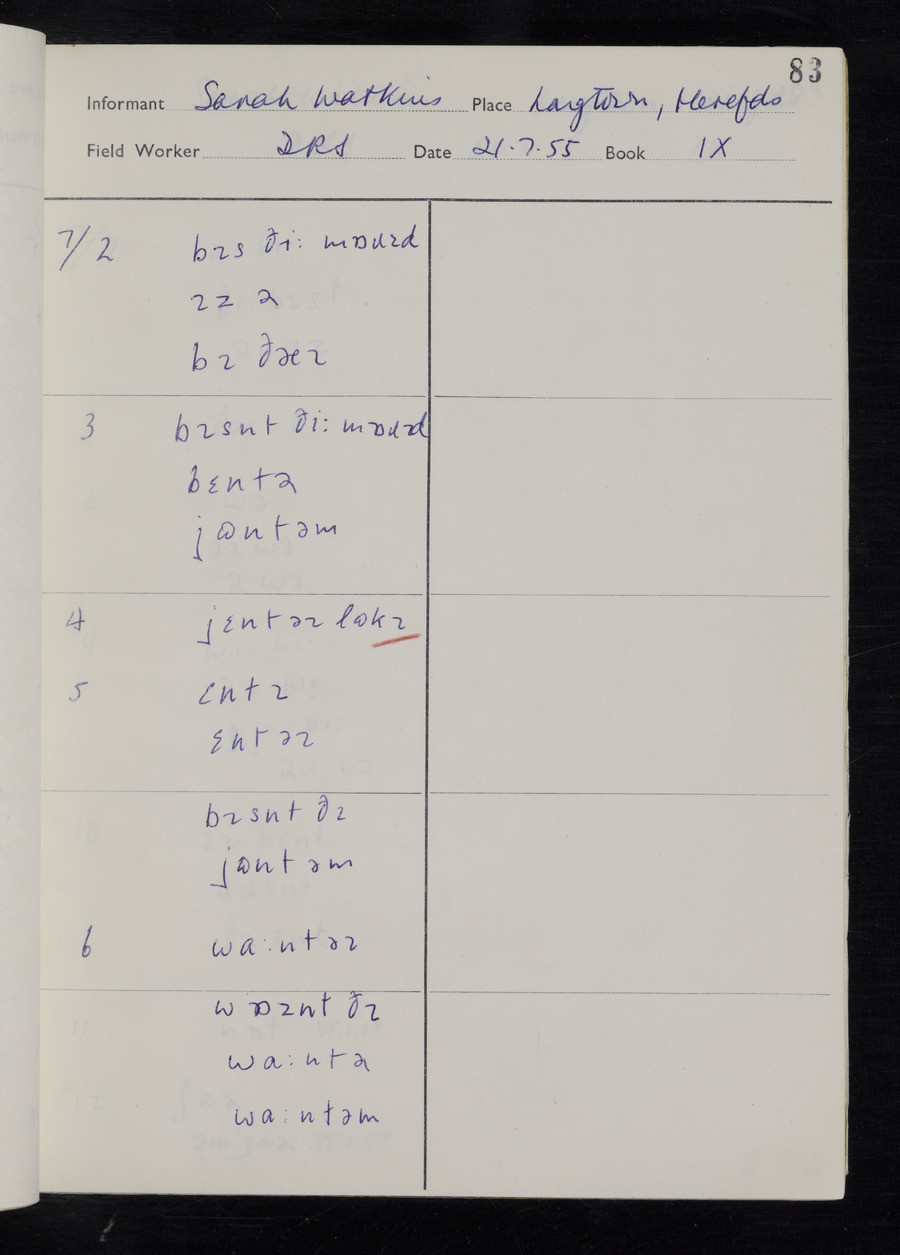 83
Informant Sarah Watkins Place Longtown, Herefds
Field Worker DRS Date 21.7.55 Book IX
7/2 bɪs ði: mɒuɪd
ɪz ə
bɪ ðəɪ
3 bɪsnt ði: mɒuɪd
bɛntə
jɒntəm
4 jɛntəɪ lɒkɪ
5 ɛntɪ
ɛntəɪ
bɪsnt ðɪ
jɒntəm
6 wa:ntəɪ
wɒznt ðɪ
wa:ntə
wa:ntəm